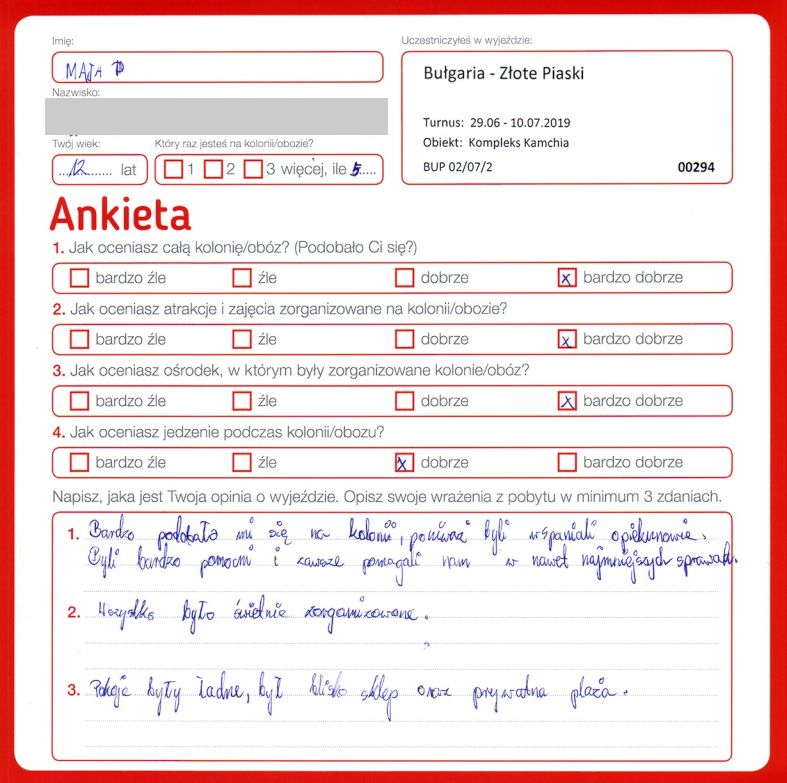 Imię:
MAJA P
Nazwisko:
Twój wiek:
12 lat
Który raz jesteś na kolonii/obozie?
1 2 3 więcej, ile 5
Uczestniczyłeś w wyjeździe:
Bułgaria - Złote Piaski
Turnus: 29.06 - 10.07.2019
Obiekt: Kompleks Kamchia
BUP 02/07/2 00294
Ankieta
1. Jak oceniasz całą kolonię/obóz? (Podobało Ci się?)
bardzo źle źle dobrze x bardzo dobrze
2. Jak oceniasz atrakcje i zajęcia zorganizowane na kolonii/obozie?
bardzo źle źle dobrze x bardzo dobrze
3. Jak oceniasz ośrodek, w którym były zorganizowane kolonie/obóz?
bardzo źle źle dobrze x bardzo dobrze
4. Jak oceniasz jedzenie podczas kolonii/obozu?
bardzo źle źle x dobrze bardzo dobrze
Napisz, jaka jest Twoja opinia o wyjeździe. Opisz swoje wrażenia z pobytu w minimum 3 zdaniach.
1. Bardzo podobało mi się na kolonii, ponieważ byli wspaniali opiekunowie.
Byli bardzo pomocni i zawsze pomagali nam w nawet najmniejszych sprawach.
2. Wszystko było świetnie zorganizowane.
3. Pokoje były ładne, był blisko sklep oraz prywatna plaża.